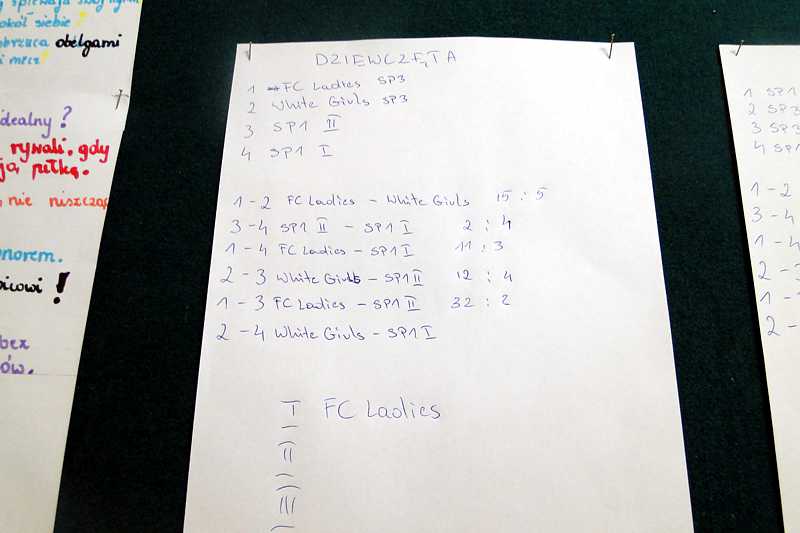 okół siebie?
obrzuca obelgami
i mecz!
idealny?
rywali, gdy
piłkę.
nie niszcząc
norem.
!
bez
ów.
DZIEWCZĘTA
1 FC Ladies SP3
2 White Girls SP3
3 SP1 II
4 SP1 I
1-2 FC Ladies - White Girls 15 : 5
3-4 SP1 II - SP1 I 2 : 4
1-4 FC Ladies - SP1 I 11 : 3
2-3 White Girls - SP1 II 12 : 4
1-3 FC Ladies - SP1 II 32 : 2
2-4 White Girls - SP1 I
I FC Ladies
II
III
1 SP1
2 SP3
3 SP3
4 SP1
1-2
3-4
1-4
2-3
1-
2-